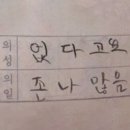 의성 없다고요
의일 존나 많음